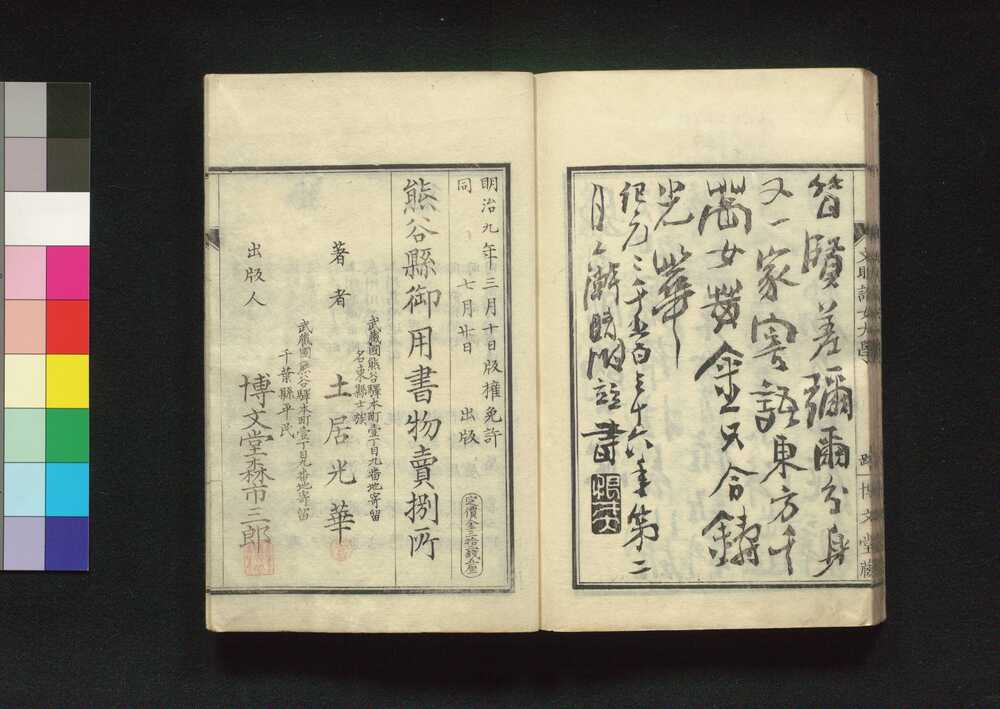 賢差彌爾分身
又一家寄語東方千
萬女黄金只合鑄
光華
紀元二千五百三十六年第二
月上澣 書
文明論女大學
跋 博文堂藏
明治九年三月十日版權免許
同 七月廿日 出版
定價金三拾錢五厘
熊谷縣御用書物賣捌所
武藏國熊谷驛本町壹丁目九番地寄留
名東縣士族
著者 土居光華
武藏國熊谷驛本町壹丁目九番地寄留
千葉縣平民
出版人 博文堂森市三郎